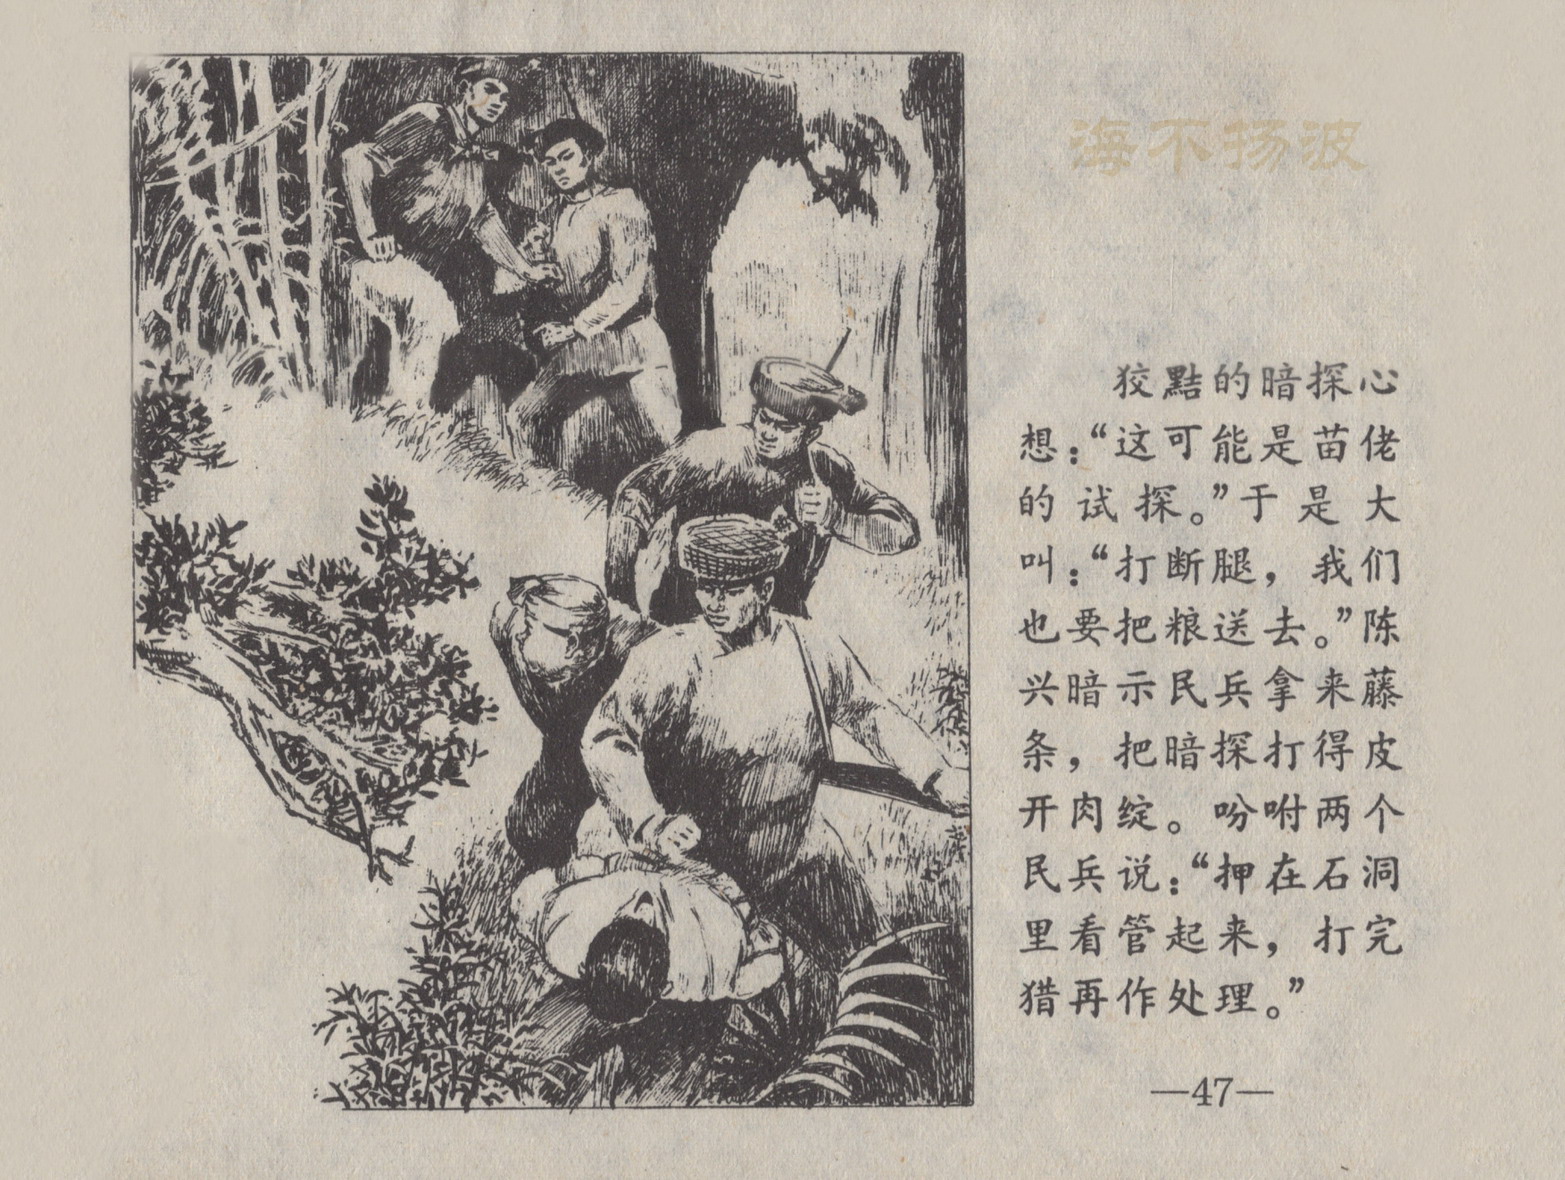 海不扬波
狡黠的暗探心
想：“这可能是苗佬
的试探。”于是大
叫：“打断腿，我们
也要把粮送去。”陈
兴暗示民兵拿来藤
条，把暗探打得皮
开肉绽。吩咐两个
民兵说：“押在石洞
里看管起来，打完
猎再作处理。”
—47—